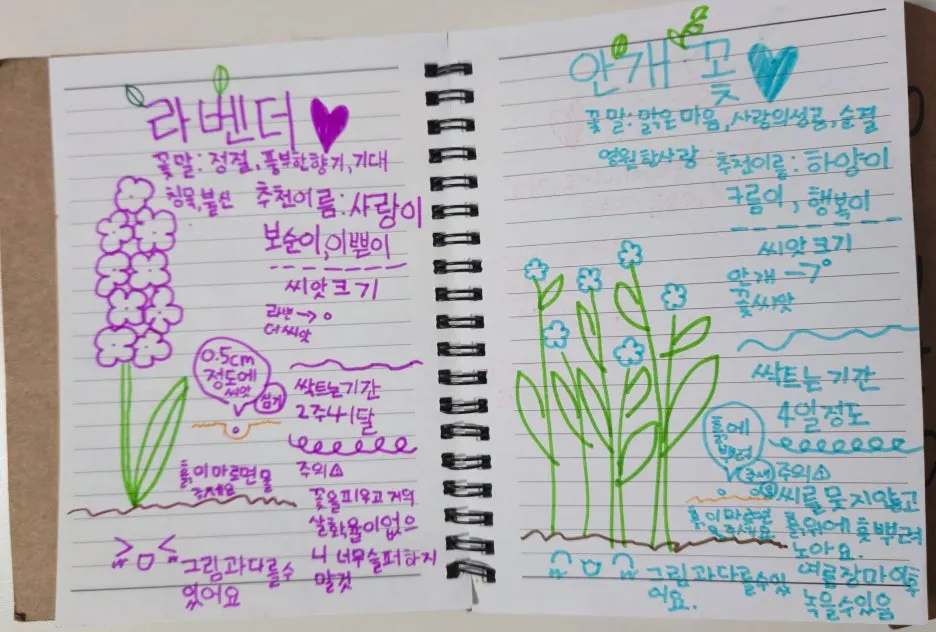 라벤더
꽃말: 정절, 풍부한향기, 기대
침묵, 불신
추천이름: 사랑이
보순이, 이쁜이
씨앗크기
라벤→
더씨앗
0.5cm
정도에
씨앗
심기
싹트는기간
2주~1달
흙이마르면물
주세요
주의⚠
꽃을피우고거의
살확율이없으
니 너무슬퍼하지
말것
그림과다를수
있어요
안개꽃
꽃말: 맑은마음, 사랑의성공, 순결
영원한사랑
추천이름: 하양이
구름이, 행복이
씨앗크기
안개→
꽃씨앗
싹트는기간
4일정도
흙에
흩뿌려
주세요
주의⚠
씨를뭇지않고
흙위에흩뿌려
노아요.
흙이마르면
물주세요
여름장마이후
녹을수있음
그림과다를수있
어요.